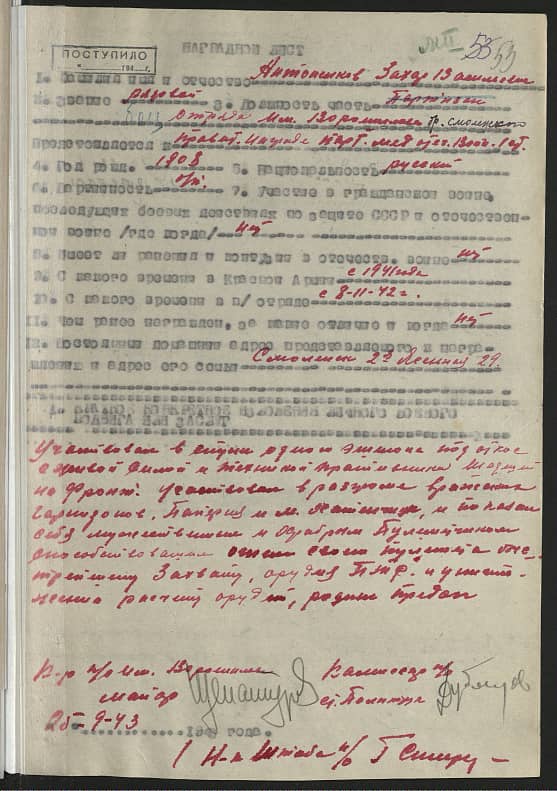 53
53
ПОСТУПИЛО
194 г.
НАГРАДНОЙ ЛИСТ
1. Фамилия имя и отчество Антоненков Захар Василевич
2. Звание рядовой 3. Должность часть Партизан
отряда им. Ворошилова гр. Смоленского
Представляется к
4. Год рожд. 1908 5. Национальность русский
6. Партийность б/п. 7. Участие в гражданской войне,
последующих боевых действиях по защите СССР и отечествен-
ной войне /где когда/ нет
8. Имеет ли ранения и контузии в отечеств. войне нет
9. С какого времени в Красной Армии с 1941 года
10. С какого времени в п/ отряде с 8-11-42 г.
11. Чем ранее награжден, за какие отличия и когда нет
12. Постоянный домашний адрес представляемого к награ-
ждению и адрес его семьи Смоленск 2я Весенняя 29.
1. КРАТКОЕ КОНКРЕТНОЕ ИЗЛОЖЕНИЕ ЛИЧНОГО БОЕВОГО
ПОДВИГА ИЛИ ЗАСЛУГ
Участвовал в спуске одного эшелона под откос
с живой силой и техникой противника идущий
на фронт. Участвовал в разгроме вражеских
гарнизонов, и м. и показал
себя мужественным и храбрым пулеметчиком
способствовавший огнем своего пулемета
захвату, орудия ПТО и уничто-
жения расчета орудия, родине предан
К-р п/о им. Ворошилова Комиссар п/о
майор ст. Политрук
25-9-43
194 года.
Н-к Штаба п/о